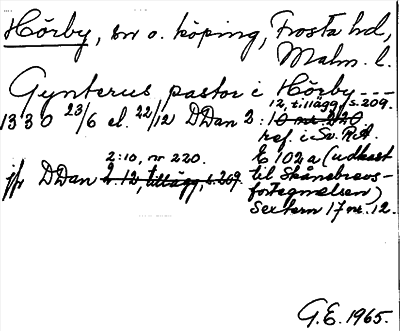 Hörby, sn o. köping, Frosta hd,
Malm. l.
Gynterus pastor i Hörby ---
12, tillägg, s. 209.
1330 23/6 el. 22/12 DDan 2: 10 nr 220
ref. i Sv. R.A.
2:10, nr 220. E 102 a (udkast
jfr DDan 2:12, tillägg, s. 209 til Skånebrevs-
fortegnelsen)
Sextern 17 nr. 12.
G.E. 1965.